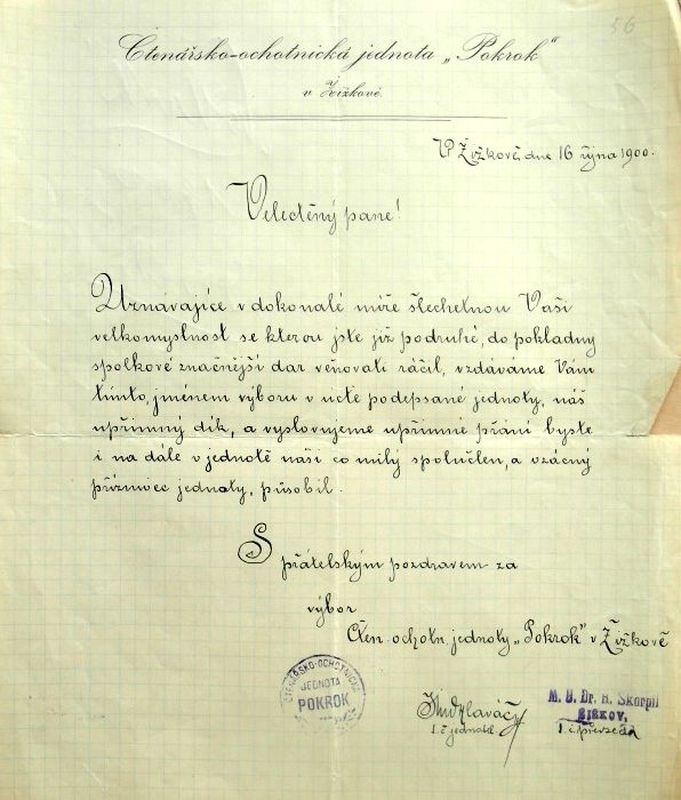 56
Čtenářsko-ochotnická jednota „Pokrok“
v Žižkově.
V Žižkově, dne 16 října 1900.
Velectěný pane!
Uznávajíce v dokonalé míře šlechetnou Vaši
velkomyslnost se kterou jste již podruhé, do pokladny
spolkové značnější dar věnovati ráčil, vzdáváme Vám
tímto, jménem výboru v úctě podepsané jednoty, náš
upřímný dík, a vyslovujeme upřímné přání byste
i na dále v jednotě naší co milý spolučlen, a vzácný
příznivec jednoty, působil.
S přátelským pozdravem za
výbor
Čten. ochotn. jednoty „Pokrok“ v Žižkově
ČTENÁŘSKO-OCHOTNICKÁ
JEDNOTA
POKROK
M. U. Dr. H. Škorpil
ŽIŽKOV,
t. č. jednatel
t. č. předseda